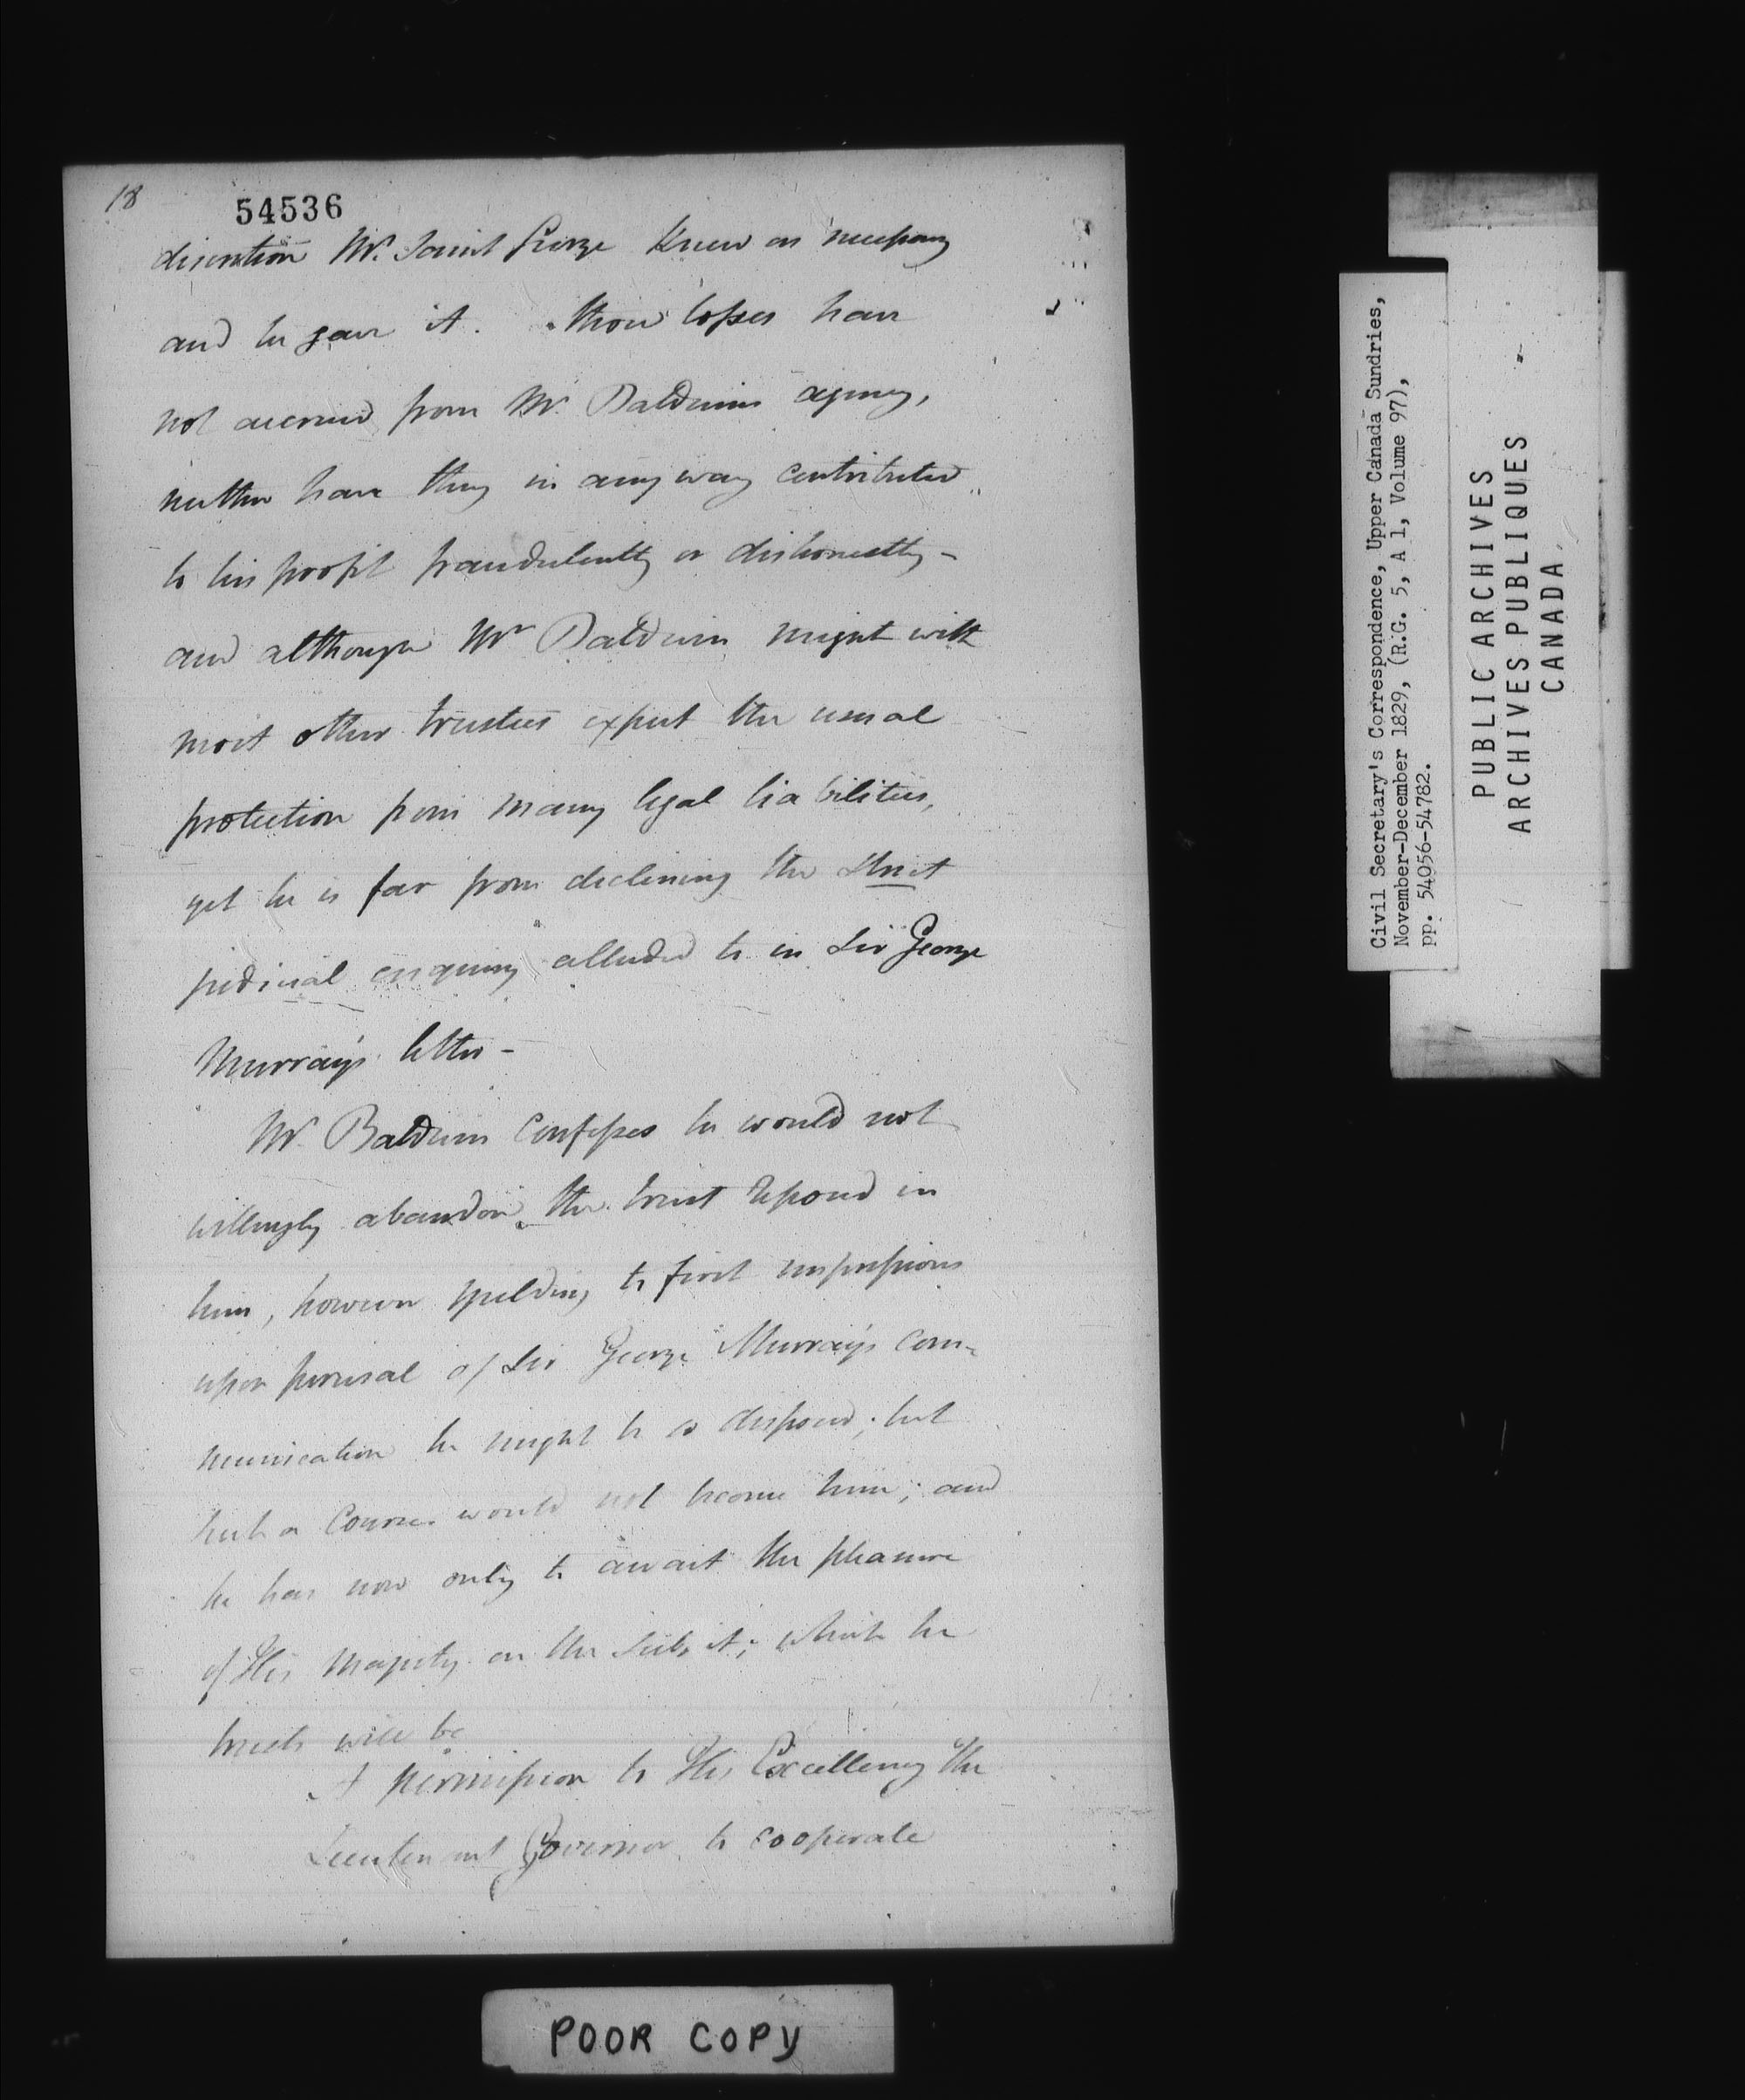 18
54536
discretion Mr. Saint George knew as necessary
and he gave it. those losses have
not accrued from Mr. Baldwins agency,
neither have they in any way contributed
to his profit fraudulently or dishonestly -
and although Mr Baldwin might with
most other trustees expect the usual
protection from many legal liabilities,
yet he is far from declining the strict
judicial enquiry alluded to in Sir George
Murray's letter -
Mr. Baldwin confesses he would not
willingly abandon the trust reposed in
him, however yielding to first impressions
upon perusal of Sir George Murray's com-
munication he might be so disposed; but
such a course would not become him; and
he has now only to await the pleasure
of His Majesty on the subject; which he
trusts will be
A permission to His Excellency the
Lieutenant Governor to cooperate
Civil Secretary's Correspondence, Upper Canada Sundries,
November-December 1829, (R.G. 5, A 1, Volume 97),
pp. 54056-54782.
PUBLIC ARCHIVES
ARCHIVES PUBLIQUES
CANADA
POOR COPY